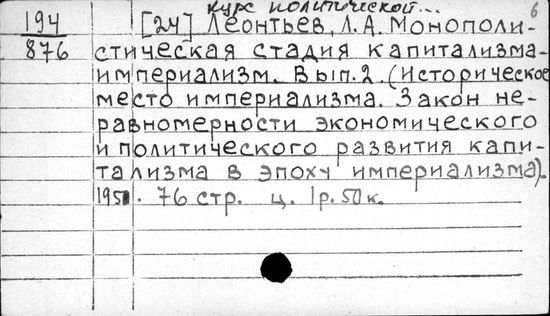 курс политической...
6
194 [24] Леонтьев, Л.А. Монополи-
876 стическая стадия капитализма-
империализм. Вып.2. (Историческое
место империализма. Закон не-
равномерности экономического
и политического развития капи-
тализма в эпоху империализма).
1951. 76 стр. ц. 1р.50к.